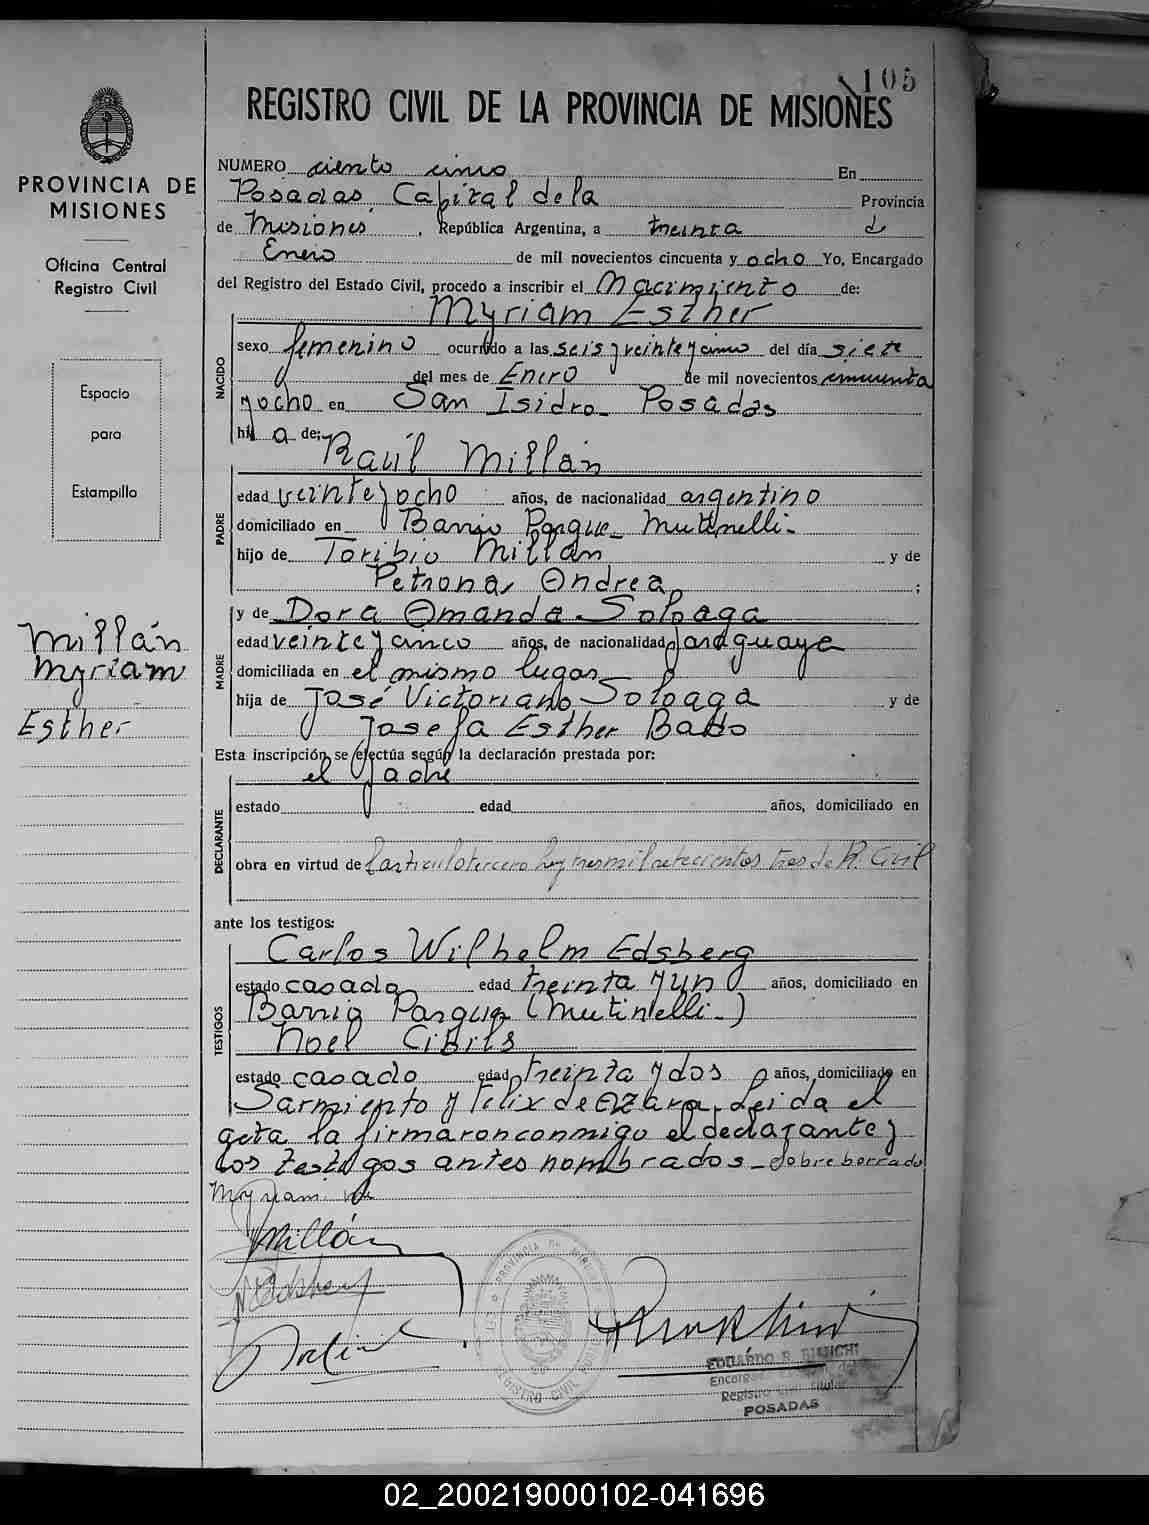 105
REGISTRO CIVIL DE LA PROVINCIA DE MISIONES
PROVINCIA DE
MISIONES
Oficina Central
Registro Civil
Espacio
para
Estampilla
Millán
Myriam
Esther
NUMERO ciento cinco En
Posadas, Capital de la Provincia
de Misiones, República Argentina, a treinta d
Enero de mil novecientos cincuenta y ocho Yo, Encargado
del Registro del Estado Civil, procedo a inscribir el Nacimiento de:
Myriam Esther
NACIDO
sexo femenino ocurrido a las seis y veinte y cinco del día siete
del mes de Enero de mil novecientos cincuenta
y ocho en San Isidro - Posadas
hij a de:
Raúl Millán
PADRE
edad veinte y ocho años, de nacionalidad argentino
domiciliado en Barrio Parque - Mutinelli -
hijo de Toribio Millán y de
Petrona Ondrea ;
y de Dora Amanda Soloaga
MADRE
edad veinte y cinco años, de nacionalidad paraguaya
domiciliada en el mismo lugar
hija de José Victoriano Soloaga y de
Josefa Esther Bado
Esta inscripción se efectúa según la declaración prestada por:
el padre
DECLARANTE
estado edad años, domiciliado en
obra en virtud de l'articulo tercero ley tres mil setecientos tres de R. Civil
ante los testigos:
Carlos Wilhelm Edsberg
TESTIGOS
estado casado edad treinta y un años, domiciliado en
Barrio Parque (Mutinelli -)
Noel Cibils
estado casado edad treinta y dos años, domiciliado en
Sarmiento y Felix de Azara. Leida el
acta la firmaron conmigo el declarante y
los testigos antes nombrados - sobre borrado
Myriam
Millán
PROVINCIA DE MISIONES
REGISTRO CIVIL
EDUARDO R. BIANCHI
Registro Civil Titular
POSADAS
02_200219000102-041696